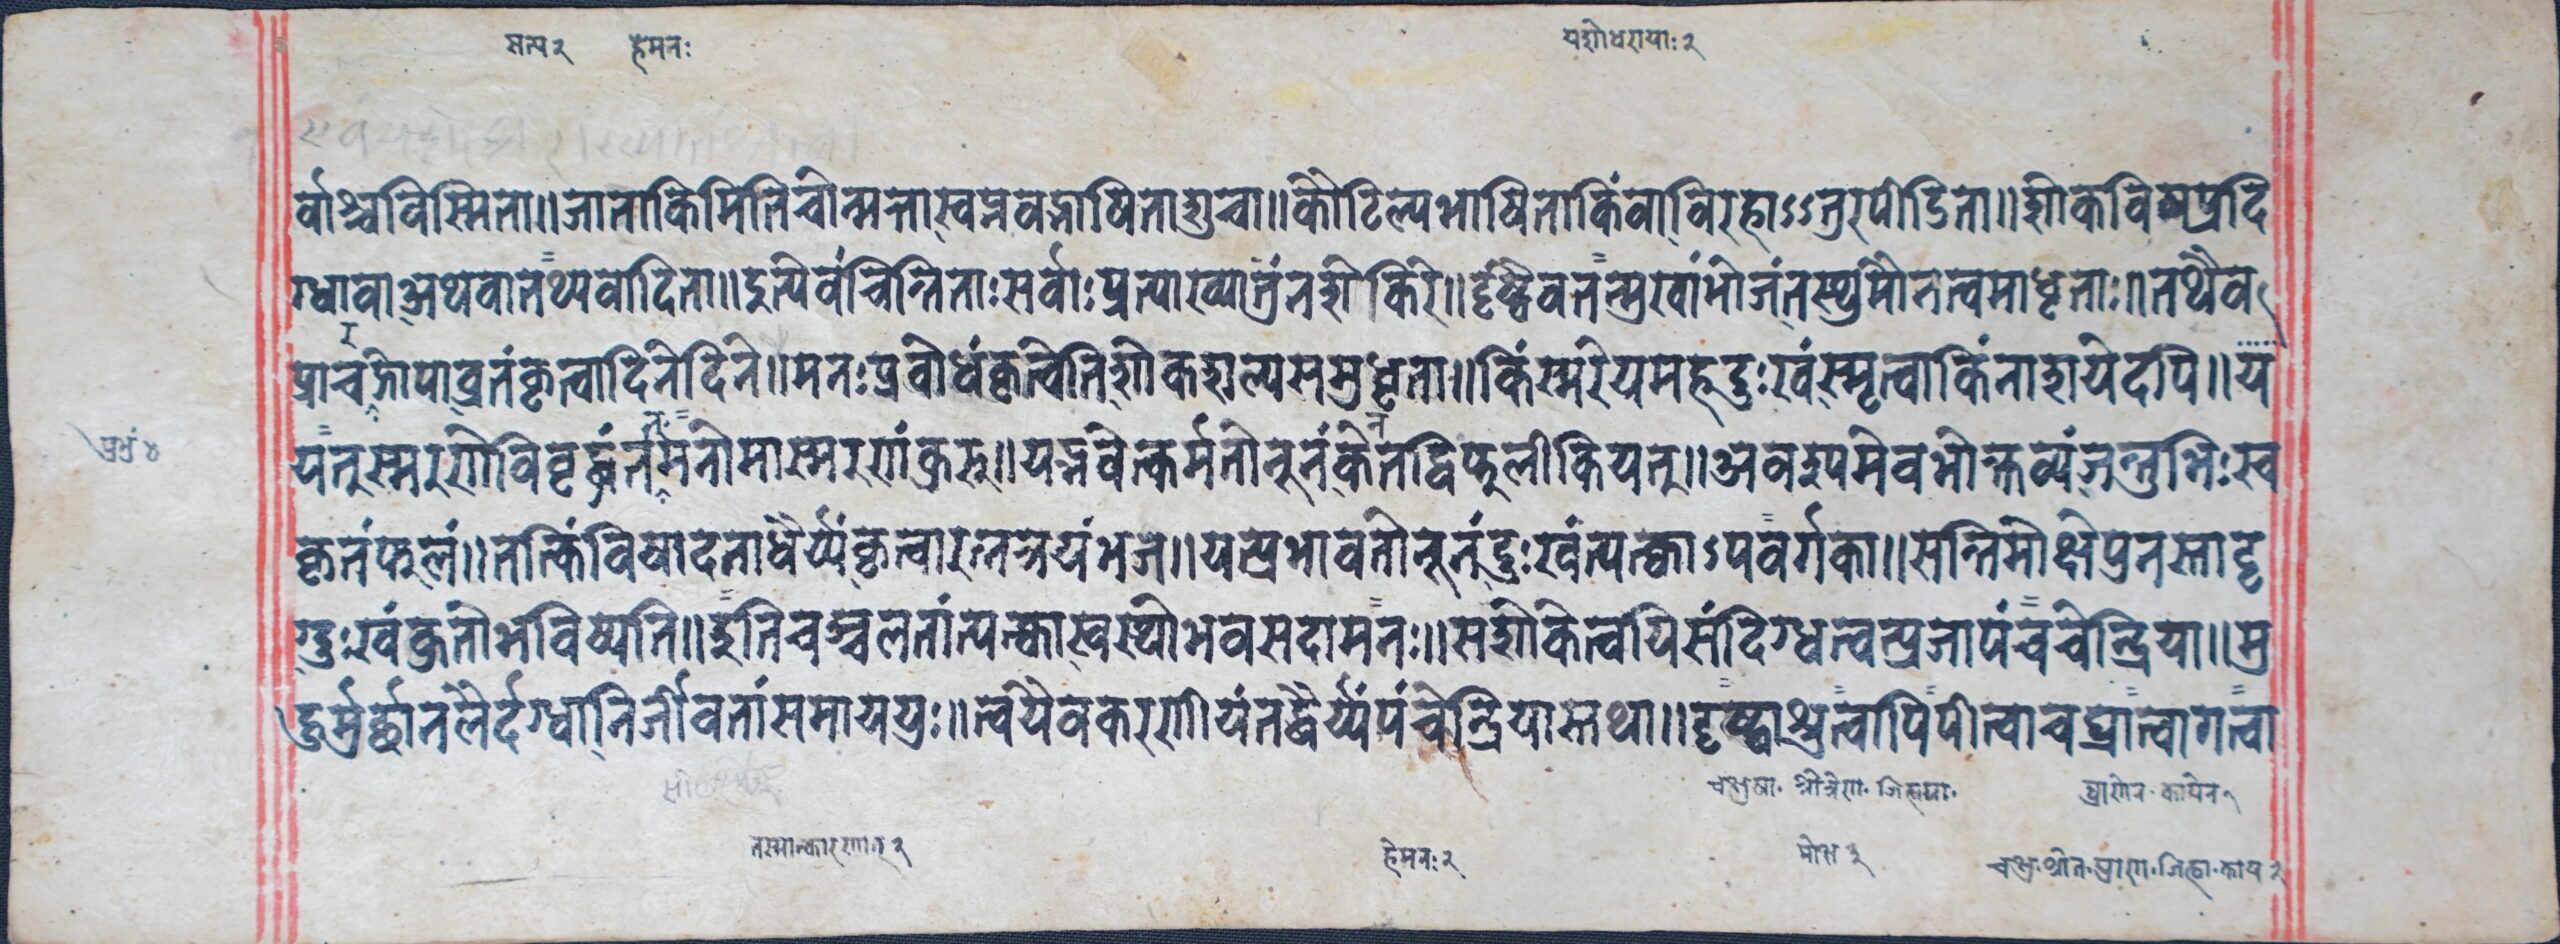 सत्य २ हेमनः यशोधरायाः २
र्वाश्चविस्मिता॥जाताकिमितिचोन्मत्तास्वप्नवद्भाषिताशुचा॥कौटिल्यभाषिताकिंवाविरहाऽऽतुरपीडिता॥शोकविषप्रदि
ग्धावाअथवातथ्यवादिता॥इत्येवंचिन्तिताःसर्वाःप्रत्याख्यातुंनशेकिरे॥दृष्ट्वैवतन्मुखांभोजंतस्थुर्मौनत्वमाधृताः॥तथैव
प्राचगोपाव्रतंकृत्वादिनेदिने॥मनःप्रवोधंकृत्वेतिशोकशल्यसमुद्धृता॥किंस्मरेयमहद्दुःखंस्मृत्वाकिंनाशयेदपि॥य
यतुस्मरणेविवृद्धंतमनोमास्मरणंकुरु॥यद्भवेत्कर्मतोनूनंकेनतद्विफुलीकियत्॥अवश्यमेवभोक्तव्यंजन्तुभिःस्व
कृतंफुलं॥तत्किंविषादताधैर्य्यंकृत्वारत्नत्रयंभज॥यत्प्रभावतोनूनंदुःखंत्यत्काऽपवर्गका॥सन्तिमोक्षेपुनस्तादृ
ग्दुःखंकुतोभविष्यति॥इतिचञ्चलतांत्यत्कास्वस्थोभवसदामनः॥सशोकेत्वयिसंदिग्धत्वत्प्रजापंचचेन्द्रिया॥मु
हुर्मुर्च्छानलैर्दग्धानिर्जीवतांसमाययुः॥त्वयैवकरणीयंतद्धैर्य्यंपंचेन्द्रियास्तथा॥दृष्ट्वाश्रुत्वापिपीत्वाचघ्रात्वागत्वा
चक्षुषा· श्रोत्रेण· जिह्वया· घ्राणेन· कायेन
तस्मात्कारणात् २ हेमनः २ मोक्ष ३ चक्षु·श्रोत·घ्राण·जिह्वा·काय २